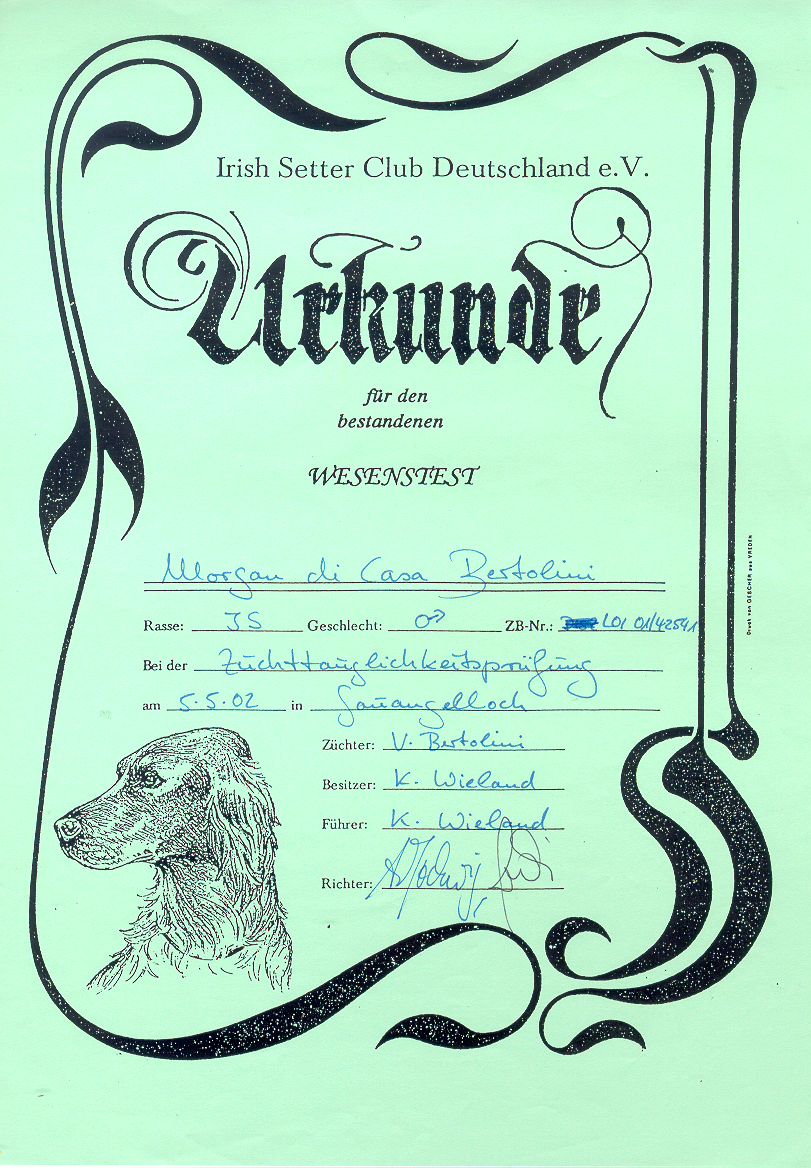 Irish Setter Club Deutschland e.V.
Urkunde
für den
bestandenen
WESENSTEST
Morgan di Casa Bertolini
Rasse: IS Geschlecht: ♂ ZB-Nr.: LOI 01/42541
Bei der Zuchttauglichkeitsprüfung
am 5.5.02 in Gauangelloch
Züchter: V. Bertolini
Besitzer: K. Wieland
Führer: K. Wieland
Richter:
Druck von GESCHER aus VREDEN